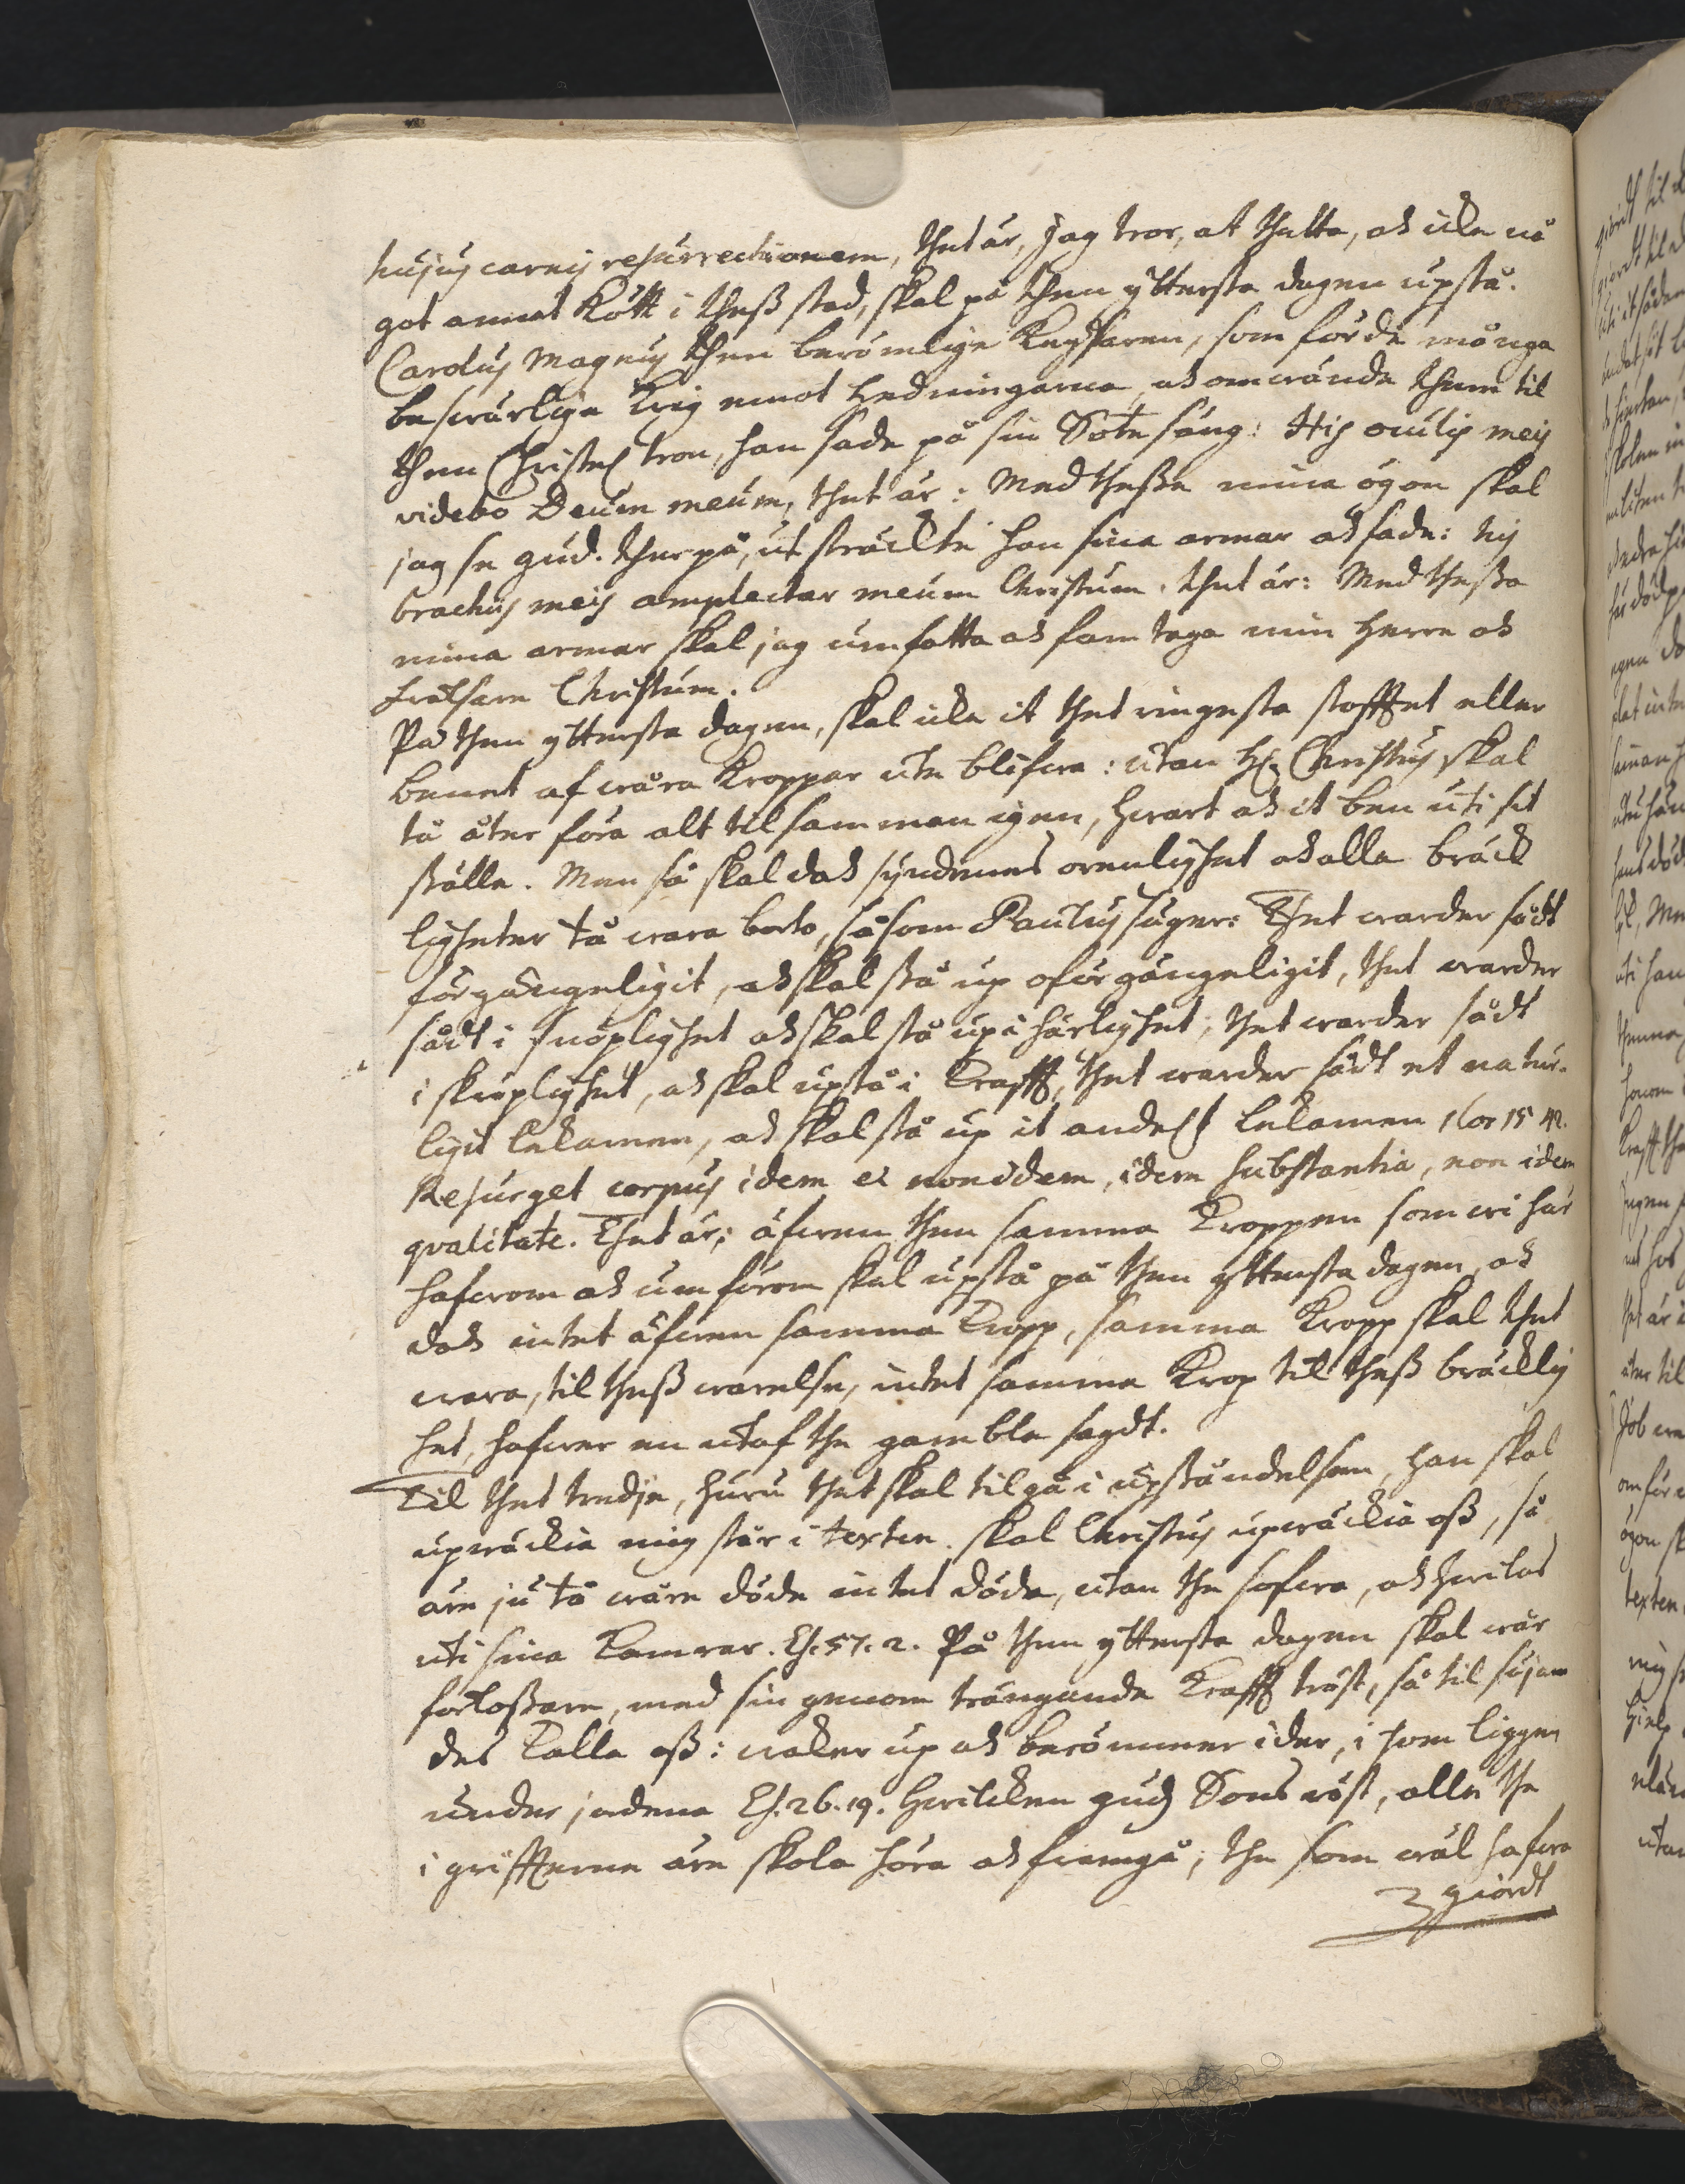 hujus carnis resurrectionem, thet är, jag tror, at thetta, och icke nå
got annat Kött i thess stad, skal på then yttersta dagen upstå.
Carolus Magnus then berömlige Keijsaren, som förde många
beswärlige Krig emot Hedningarna, och omwände them til
then Christel tron, han sade på sin Sotesäng: His oculis meis
videbo Deum meum, thet är: Med thessa mina ögon skal
jag se gud. ther på, utsträckte han sina armar och sade: his
brachiis meis amplectar meum Christum. thet är: Med thessa
mina armar skal jag umfatta och famtaga min Herre och
frälsare Christum.
På then yttersta dagen, skal icke it thet ringesta stofftet eller
benet af wåra Kroppar ute blifwa: utan H: Christus skal
tå åter föra alt tilsamman igen, hwart och it ben uti sit
ställe. Men så skal doch syndenes orenlighet och alla bräck
ligheter tå wara borto, såsom Paulus säger: Thet warder sådt
förgängeligit, och skal stå up oförgängeligit, thet warder
sådt i snöplighet och skal stå up i härlighet; thet warder sådt
i skröplighet, och skal upstå i Krafft, thet warder sådt et natur-
ligit lekamen, och skal stå up it andelit lekamen 1 Cor 15 42.
Resurget corpus idem et non idem, idem substantia, non idem
qvalitate. Thet är; äfwen then samma Kroppen som wi här
hafwom och umförom skal upstå på then yttersta dagen, och
doch intet äfwen samma Kropp, samma Kropp skal thet
wara, til thess warelse, intet samma Krop til thess bräcklig
het, hafwer en utaf the gamble sagdt.
Til thet tredje, huru thet skal tilgå i upståndelsen, han skal
upwäckia mig står i texten. skal Christus upwäckia oss, så
äre ju tå wåre döde intet döde, utan the sofwa, och hwilas
uti sina Kamrar. Es. 57. 2. På then yttersta dagen skal wår
förlossare, med sin genom trängande Krafft röst, så til sajan
des Kalla oss: waker up och berömmer ider, i som liggen
under jordena Es. 26. 19. hwilcken guds Sons röst, alle the
i griffterne äre skola höra och framgå; the som wäl hafwa
giordt